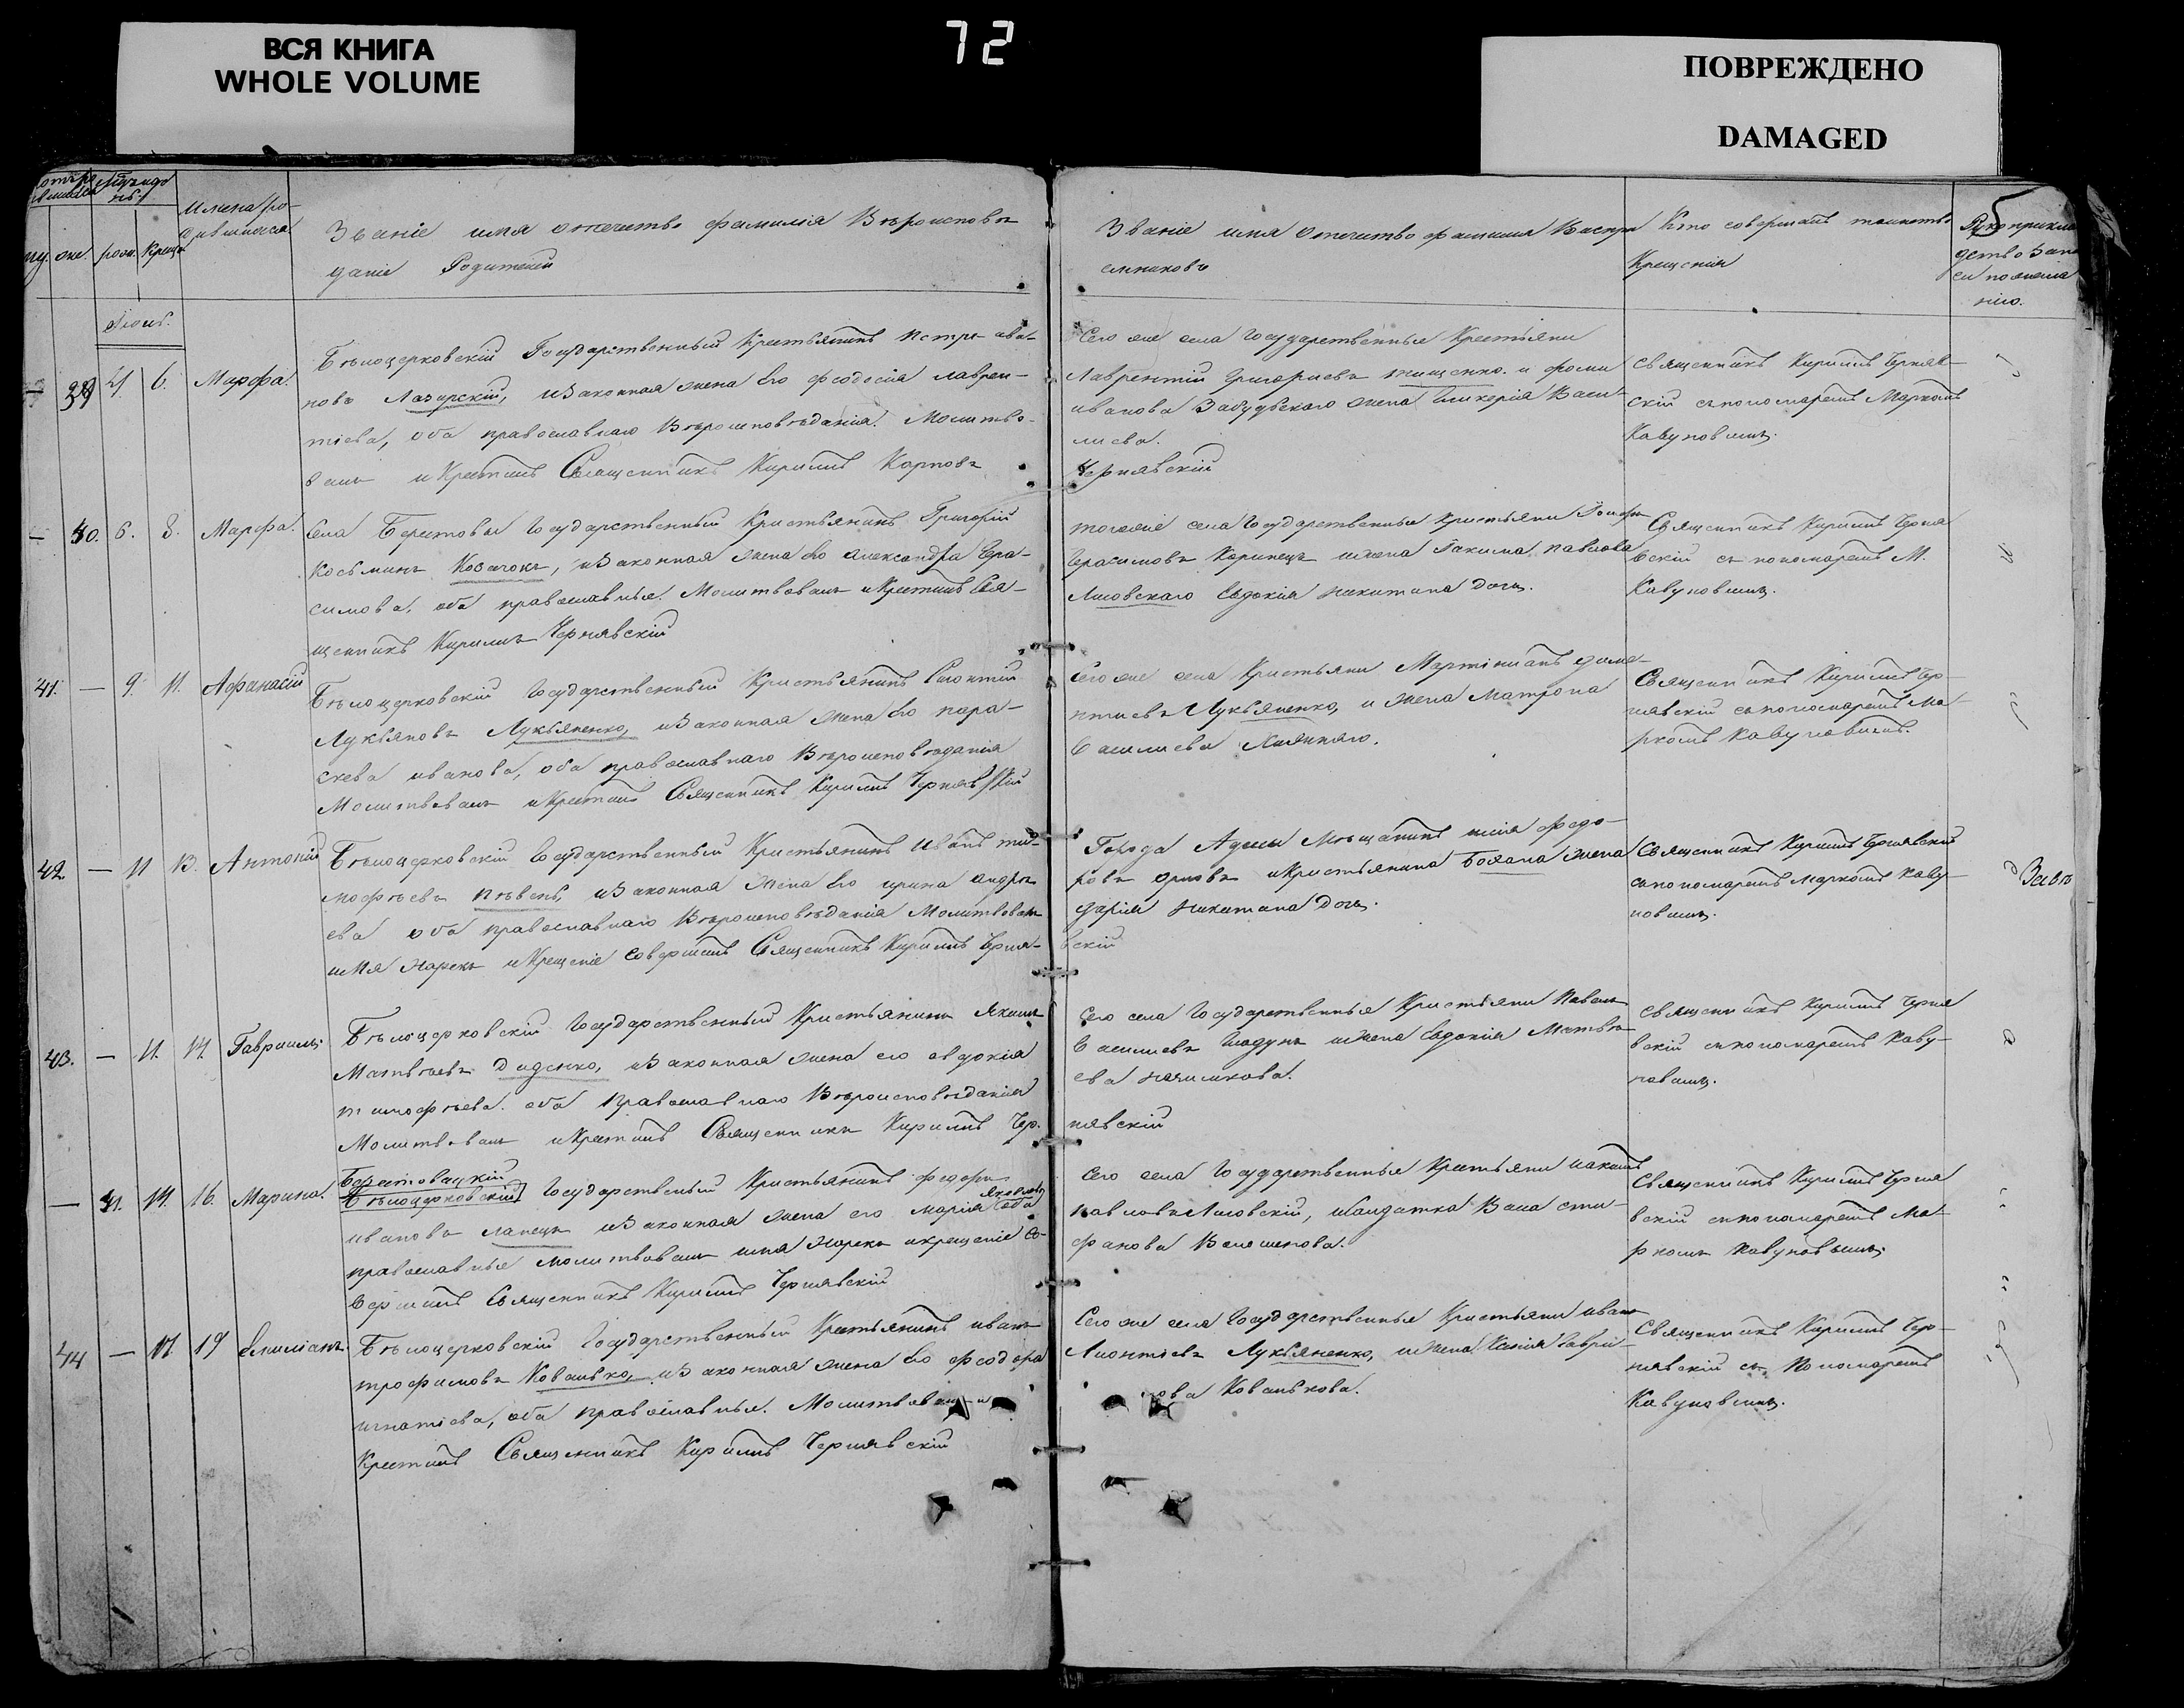 ВСЯ КНИГА
WHOLE VOLUME
72
ПОВРЕЖДЕНО
DAMAGED
5
Имена ро-
дившихся
му. же. рож. Крещ.
Званіе имя отечество фамилія Вѣроисповѣ-
даніе Родителей
Званіе имя отечество фамилия Воспри-
емниковъ
Кто совершалъ таинство
Крещенія
Рукоприкла
дство Запи
си по жела
нію.
— 39 4 6. Марфа.
Бѣлоцерковскій Государственный Крестьянинъ Петръ ива-
новъ Лазарскій, изаконная жена его феодосія лаврен-
тіева, оба православнаго Вѣроисповѣданія. Молитво-
валъ и Крестилъ Священникъ Кирилъ Карповъ
Сего же села Государственные Крестьяни
Лаврентій Григориевъ тищенко. и
иванова жена Гликерія Васи-
лиева.
Чернявскій
Священникъ Кирилъ Черняв-
скій съ пономаремъ Маркомъ
Кавуновымъ.
— 40. 6. 8. Марфа.
Села Берестовы Государственный Кристьянинъ Григорій
Косьминъ Козачокъ, изаконная жена его Александра Гера-
симова, оба православные. Молитвовалъ и Крестилъ Свя-
щенникъ Кирилъ Чернявскій
тогоже села Государственные кристьяни
Герасимовъ Коринецъ и жена Павлова
Лисовскаго Евдокія никитина Дочь.
Священникъ Кирилъ Черня
вскій съ пономаремъ М.
Кавуновымъ.
41. — 9. 11. Афанасій
Бѣлоцерковскій Государственный Кристьянинъ Леонтій
Лукьяновъ Лукьяненко, изаконная жена его пара-
скева иванова, оба православнаго Вѣроисповѣданія
Молитвовалъ и Крестилъ Священникъ Кирилъ Чернявскій
Сего же села Кристьяни Мартініанъ
Лукьяненко, и жена Матрона
Василиева
Священникъ Кирилъ Чер-
нявскій съ пономаремъ Ма-
ркомъ Кавуновымъ.
42. — 11 13. Антоній
Бѣлоцерковскій Государственный Кристьянинъ Иванъ ти-
мофѣевъ Пѣвень, изаконная жена его ирина андре
ева оба православнаго Вѣроисповѣданія Молитвовалъ
имя нарекъ и Крещеніе совершилъ Священникъ Кирилъ Черня-
Города Мѣщанинъ федо-
ровъ орловъ и Кристьянина жена
дарія никитина Дочь.
вскій
Священникъ Кирилъ Чернявскій
съ пономаремъ Маркомъ Каву-
новымъ.
43. — 11. 14. Гавриилъ
Бѣлоцерковскій Государственный Кристьянинъ Якимъ
Матвѣевъ Диденко, изаконная жена его евдокія
тимофѣева. оба Православнаго Вѣроисповѣданія
Молитвовалъ и Крестилъ Священникъ Кирилъ Чер-
Сего села Государственные Кристьяни Павелъ
Василиевъ и жена Евдокія Матвѣ-
ева
нявскій
Священникъ Кирилъ Черня
вскій съ пономаремъ Каву-
новымъ.
— 41. 14. 16. Марина.
Берестовацкій
Бѣлоцерковскій Государственный Кристьянинъ федоръ
ивановъ лапецъ изаконная жена его марія яковлева оба
православные молитвовалъ имя нарекъ и крещеніе со-
вершилъ Священникъ Кирилъ Чернявскій
Сего села Государственные Крестьяни
павловъ Лисовскій, и Солдатка Васа сти-
фанова
Священникъ Кирилъ Черня
вскій съ пономаремъ Ма-
ркомъ Кавуновымъ.
44 — 17. 19 Емиліанъ
Бѣлоцерковскій Государственный Крестьянинъ иванъ
трофимовъ Ковалько, изаконная жена его феодора
игнатіева, оба православные. Молитвовалъ и
Крестилъ Священникъ Кирилъ Чернявскій
Сего же села Государственные Кристьяни иванъ
Лионтіевъ Лукьяненко, и жена Ксенія Гаври-
лова Ковалькова.
Священникъ Кирилъ Чер-
нявскій съ Пономаремъ
Кавуновымъ.